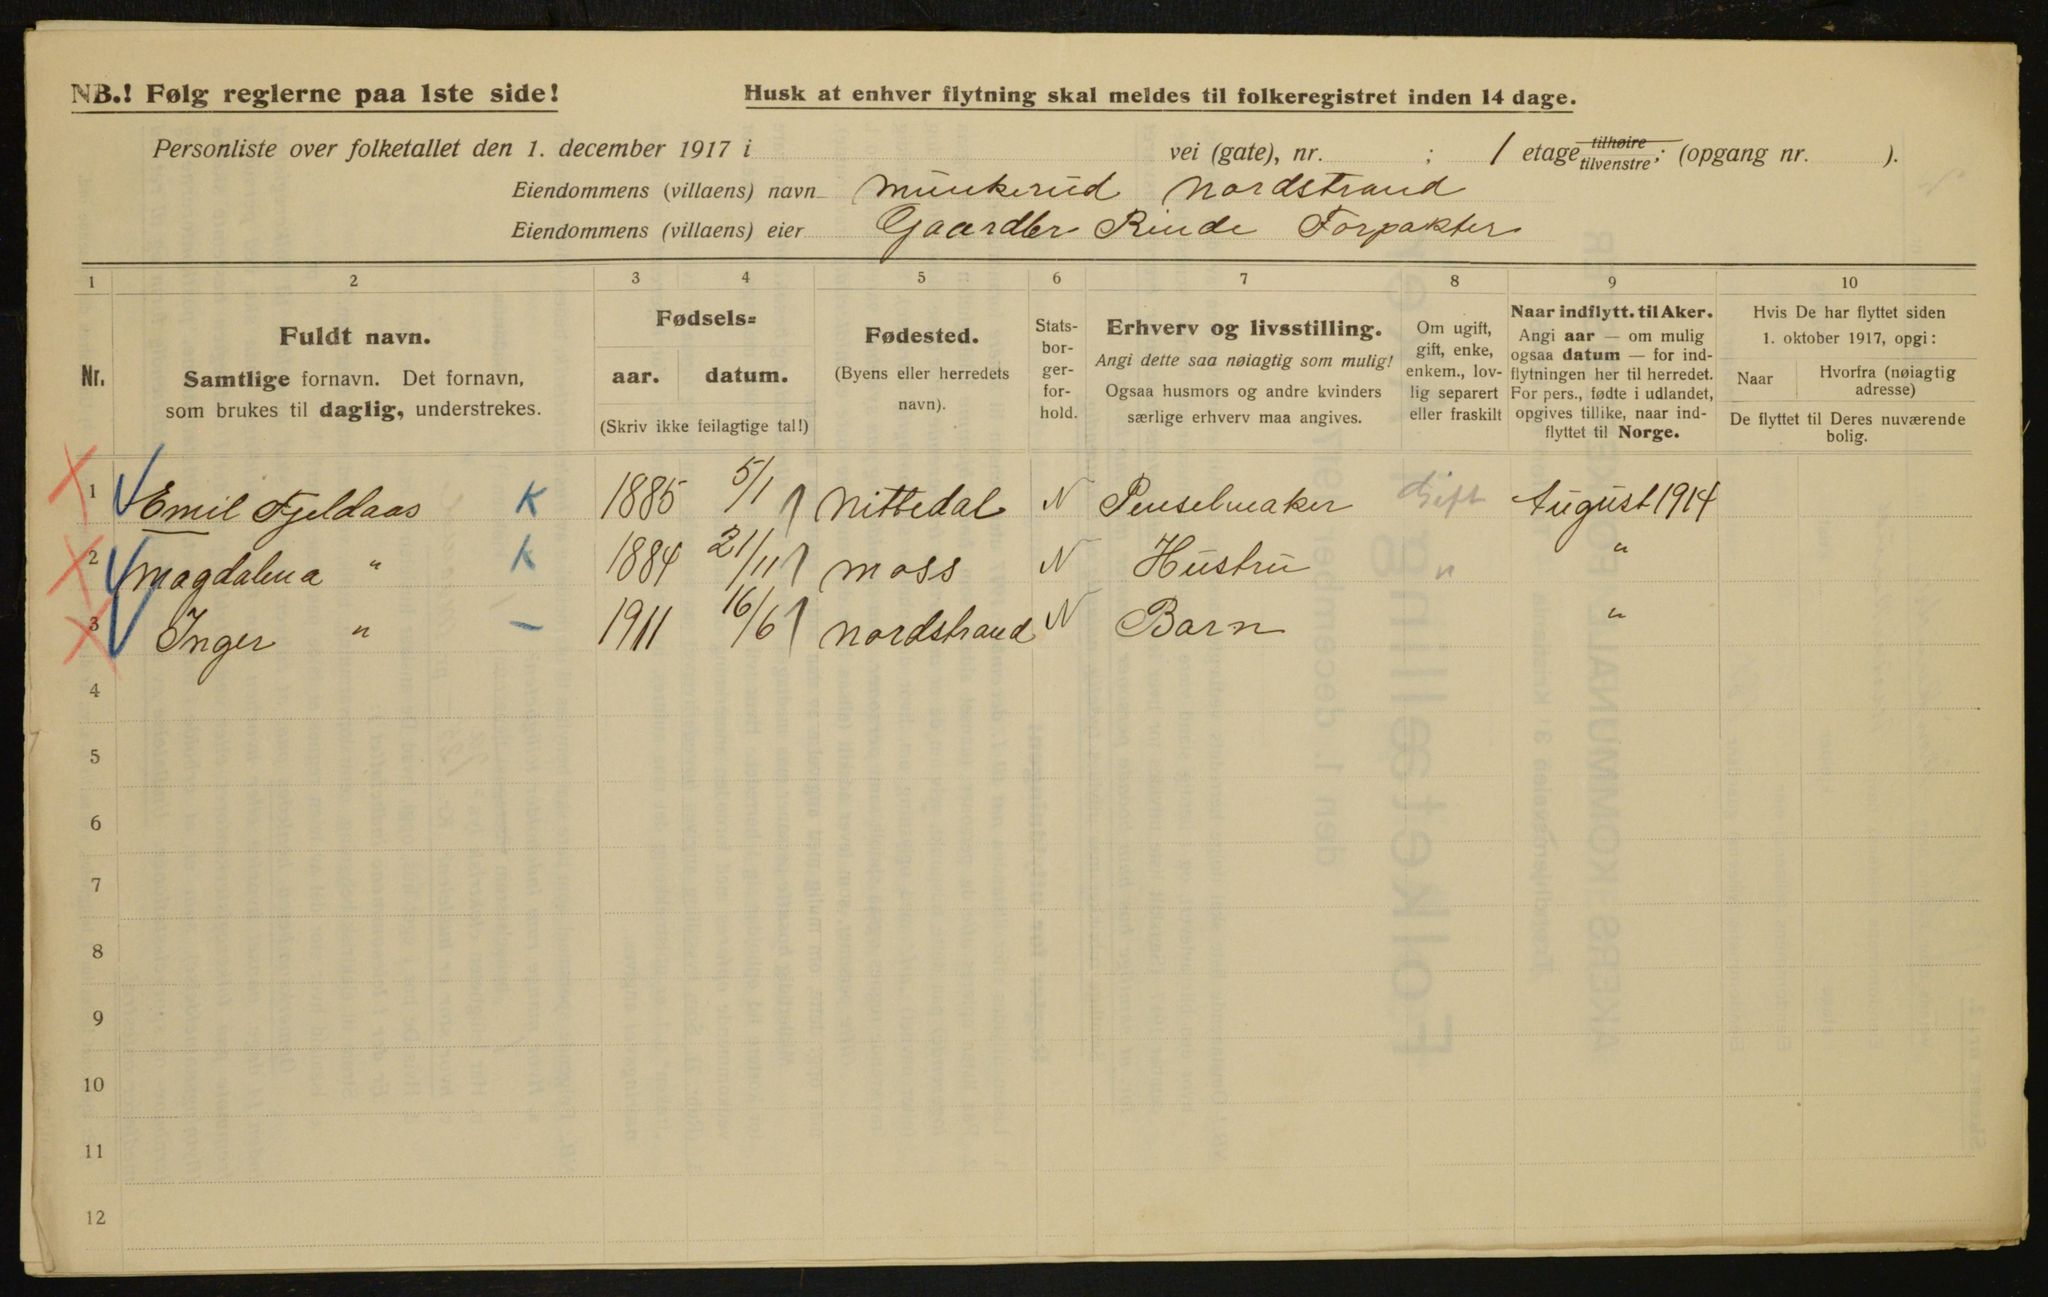 NB.! Følg reglerne paa 1ste side!
Husk at enhver flytning skal meldes til folkeregistret inden 14 dage.
Personliste over folketallet den 1. december 1917 i vei (gate), nr. ; 1 etage tilhøire tilvenstre; (opgang nr. ).
Eiendommens (villaens) navn Munkerud Nordstrand
Eiendommens (villaens) eier Gaardbr Rinde Forpakter
1 2 3 4 5 6 7 8 9 10
Nr.
Fuldt navn.
Samtlige fornavn. Det fornavn,
som brukes til daglig, understrekes.
Fødsels=
aar. datum.
(Skriv ikke feilagtige tal!)
Fødested.
(Byens eller herredets
navn).
Stats-
bor-
ger-
for-
hold.
Erhverv og livsstilling.
Angi dette saa nøiagtig som mulig!
Ogsaa husmors og andre kvinders
særlige erhverv maa angives.
Om ugift,
gift, enke,
enkem., lov-
lig separert
eller fraskilt
Naar indflytt. til Aker.
Angi aar — om mulig
ogsaa datum — for ind-
flytningen her til herredet.
For pers., fødte i udlandet,
opgives tillike, naar ind-
flyttet til Norge.
Hvis De har flyttet siden
1. oktober 1917, opgi:
Naar
Hvorfra (nøiagtig
adresse)
De flyttet til Deres nuværende
bolig.
1 Emil Fjeldaas K 1885 5/1 Nittedal N Penselmaker Gift August 1914
2 Magdalena " K 1884 21/11 Moss N Hustru " "
3 Inger " — 1911 16/6 Nordstrand N Barn "
4
5
6
7
8
9
10
11
12